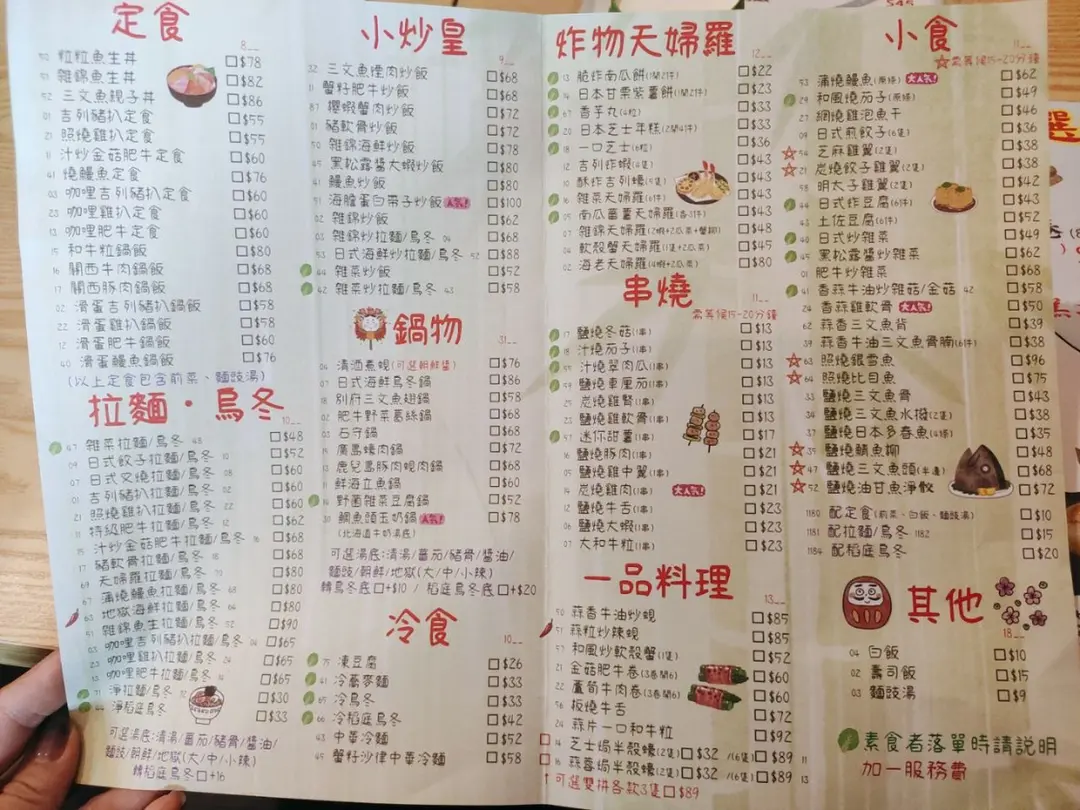 定食
8__
50 粒粒魚生丼 □$78
51 雜錦魚生丼 □$82
52 三文魚親子丼 □$86
01 吉列豬扒定食 □$55
21 照燒雞扒定食 □$55
11 汁炒金菇肥牛定食 □$60
41 燒鰻魚定食 □$76
03 咖哩吉列豬扒定食 □$60
23 咖哩雞扒定食 □$60
13 咖哩肥牛定食 □$60
15 和牛粒鍋飯 □$80
16 關西牛肉鍋飯 □$68
17 關西豚肉鍋飯 □$68
02 滑蛋吉列豬扒鍋飯 □$58
22 滑蛋雞扒鍋飯 □$58
12 滑蛋肥牛鍋飯 □$60
40 滑蛋鰻魚鍋飯 □$76
(以上定食包含前菜、麵豉湯)
拉麵・烏冬
10__
47 雜菜拉麵/烏冬 48 □$48
09 日式餃子拉麵/烏冬 10 □$52
07 日式叉燒拉麵/烏冬 08 □$60
01 吉列豬扒拉麵/烏冬 02 □$60
21 照燒雞扒拉麵/烏冬 22 □$60
11 特級肥牛拉麵/烏冬 12 □$62
15 汁炒金菇肥牛拉麵/烏冬 16 □$68
17 豬軟骨拉麵/烏冬 18 □$68
69 天婦羅拉麵/烏冬 70 □$80
67 蒲燒鰻魚拉麵/烏冬 68 □$80
63 地獄海鮮拉麵/烏冬 64 □$80
51 雜錦魚生拉麵/烏冬 52 □$90
03 咖哩吉列豬扒拉麵/烏冬 04 □$65
23 咖哩雞扒拉麵/烏冬 24 □$65
13 咖哩肥牛拉麵/烏冬 14 □$65
71 淨拉麵/烏冬 72 □$30
淨稻庭烏冬 □$33
可選湯底:清湯/番茄/豬骨/醬油/
麵豉/朝鮮/地獄(大/中/小辣)
轉稻庭烏冬□+16
小炒皇
9__
32 三文魚煙肉炒飯 □$68
11 蟹籽肥牛炒飯 □$68
87 櫻蝦蟹肉炒飯 □$72
01 豬軟骨炒飯 □$72
50 雜錦海鮮炒飯 □$78
45 黑松露醬大蝦炒飯 □$80
41 鰻魚炒飯 □$80
51 海膽蛋白帶子炒飯 人気! □$100
02 雜錦炒飯 □$62
03 雜錦炒拉麵/烏冬 04 □$68
53 日式海鮮炒拉麵/烏冬 52 □$88
44 雜菜炒飯 □$52
42 雜菜炒拉麵/烏冬 43 □$58
鍋物
31__
06 清酒煮蜆(可選朝鮮煲) □$76
07 日式海鮮烏冬鍋 □$86
18 別府三文魚翅鍋 □$58
02 肥牛野菜葛絲鍋 □$68
03 石守鍋 □$68
19 廣島蠔肉鍋 □$72
13 鹿兒島豚肉蜆肉鍋 □$68
11 鮮海立魚鍋 □$60
14 野菌雜菜豆腐鍋 □$52
30 鯛魚頭玉奶鍋 人気! □$78
(北海道牛奶湯底)
可選湯底:清湯/番茄/豬骨/醬油/
麵豉/朝鮮/地獄(大/中/小辣)
轉烏冬底□+$10 / 稻庭烏冬底□+$20
冷食
10__
75 凍豆腐 □$26
41 冷蕎麥麵 □$33
65 冷烏冬 □$33
66 冷稻庭烏冬 □$42
43 中華冷麵 □$52
45 蟹籽沙律中華冷麵 □$58
炸物天婦羅
12__
13 脆炸南瓜餅(1開2件) □$22
14 日本甘栗紫薯餅(1開2件) □$23
67 香芋丸(4粒) □$33
20 日本芝士年糕(2開4件) □$33
18 一口芝士(6粒) □$36
12 吉列炸蝦(4隻) □$43
10 酥炸吉列蠔(5隻) □$43
16 雜菜天婦羅(6件) □$43
05 南瓜蕃薯天婦羅(各3件) □$43
07 雜錦天婦羅(2蝦+2瓜.茄+蟹柳) □$48
04 軟殼蟹天婦羅(1隻+2瓜.茄) □$45
02 海老天婦羅(4蝦+2瓜.茄) □$80
串燒
11__
需等候15-20分鐘
17 鹽燒冬菇(1串) □$13
18 汁燒茄子(1串) □$13
55 汁燒翠肉瓜(1串) □$13
57 鹽燒車厘茄(1串) □$13
25 炭燒雞腎(1串) □$13
23 鹽燒雞軟骨(1串) □$13
47 迷你甜薯(1串) □$17
16 鹽燒豚肉(1串) □$21
05 鹽燒雞中翼(1串) □$21
14 炭燒雞肉(1串) 大人気! □$21
12 鹽燒牛舌(1串) □$23
06 鹽燒大蝦(1串) □$23
07 大和牛粒(1串) □$23
一品料理
13__
50 蒜香牛油炒蜆 □$85
51 蒜粒炒辣蜆 □$85
57 和風炒軟殼蟹(1隻) □$52
21 金菇肥牛卷(3卷開6) □$60
22 蘆筍牛肉卷(3卷開6) □$60
56 板燒牛舌 □$72
24 蒜片一口和牛粒 □$92
□ 14 芝士焗半殼蠔(2隻)□$32 /(6隻)□$89 11
□ 16 蒜蓉焗半殼蠔(2隻)□$32 /(6隻)□$89 13
↑可選雙拼各款3隻□$89
小食
11__
☆需等候15-20分鐘
53 蒲燒鰻魚(原條) 大人気! □$62
29 和風燒茄子(原條) □$49
27 網燒雞泡魚干 □$46
09 日式煎餃子(6隻) □$36
☆54 芝麻雞翼(2隻) □$38
☆21 炭燒餃子雞翼(2隻) □$38
58 明太子雞翼(2隻) □$42
44 日式炸豆腐(6件) □$43
43 土佐豆腐(6件) □$52
40 日式炒雜菜 □$49
45 黑松露醬炒雜菜 □$62
01 肥牛炒雜菜 □$68
41 香蒜牛油炒雜菇/金菇 42 □$58
24 香蒜雞軟骨 大人気! □$50
62 蒜香三文魚背 □$39
39 蒜香牛油三文魚骨腩(6件) □$38
☆63 照燒銀雪魚 □$96
☆64 照燒比目魚 □$75
33 鹽燒三文魚骨 □$43
34 鹽燒三文魚水撥(2隻) □$38
37 鹽燒日本多春魚(4條) □$35
☆35 鹽燒鯖魚柳 □$48
☆47 鹽燒三文魚頭(半邊) □$68
☆52 鹽燒油甘魚淨鮫 □$72
1180 配定食(前菜、白飯、麵豉湯) □$10
1181 配拉麵/烏冬 1182 □$15
1184 配稻庭烏冬 □$20
其他
18__
04 白飯 □$10
02 壽司飯 □$15
03 麵豉湯 □$9
素食者落單時請說明
加一服務費